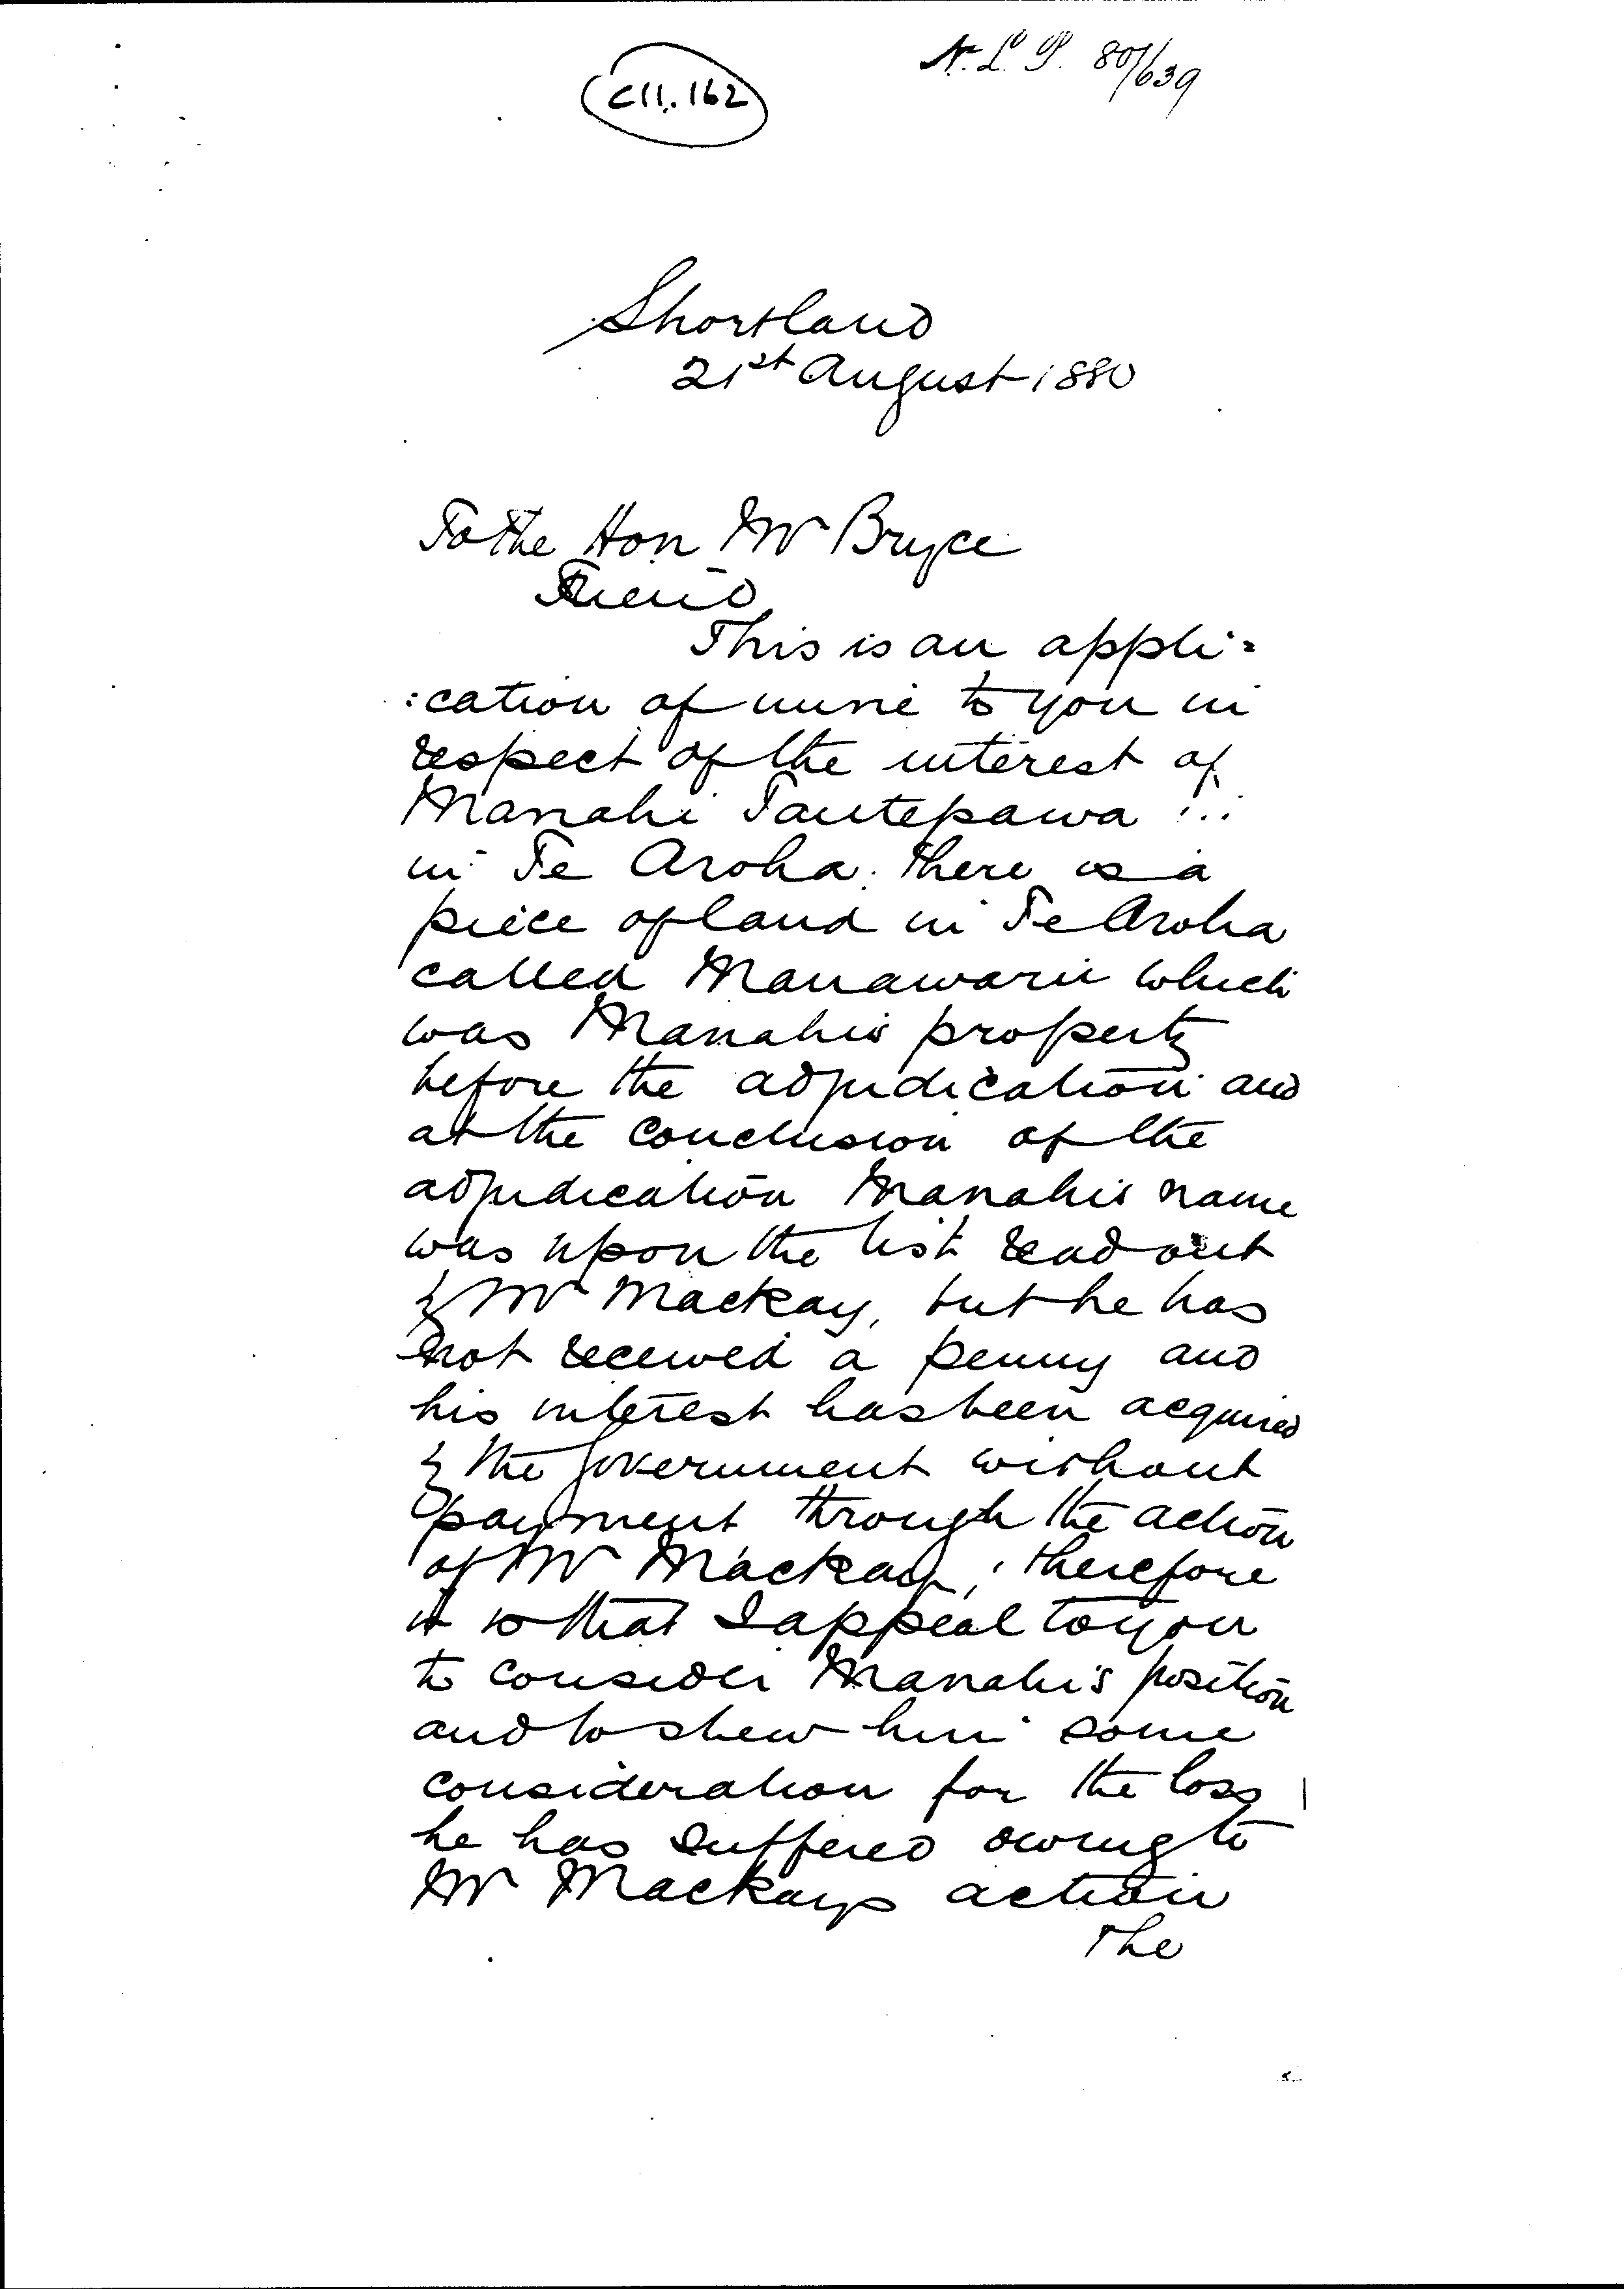 C11.162
N.L.P. 80/639
Shortland
21st August 1880
To the Hon Mr Bryce
Friend
This is an appli=
:cation of mine to you in
respect of the interest of
Manahi Tautepawa
in Te Aroha. There is a
piece of land in Te Aroha
called Manawaru which
was Manahis property
before the adjudication and
at the conclusion of the
adjudication Manahis name
was upon the list read out
by Mr Mackay, but he has
not received a penny and
his interest has been acquired
by the Government without
payment through the action
of Mr Mackay; therefore
it is that I appeal to you
to consider Manahi's position
and to shew him some
consideration for the loss
he has suffered owing to
Mr Mackays action
The